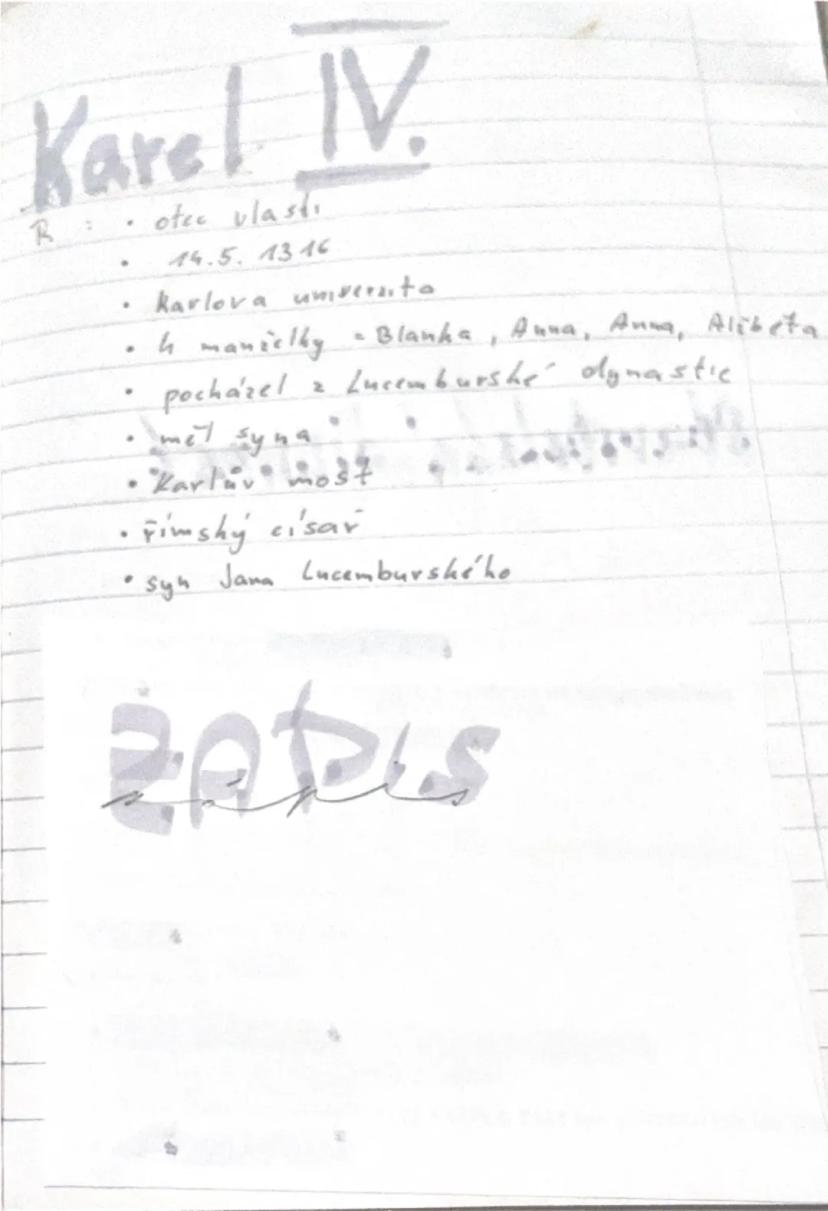 Karel IV.
R: • otec vlasti
• 14.5. 1316
• Karlova univerzita
• 4 manželky = Blanka, Anna, Anna, Alžběta
• pocházel z Lucemburské dynastie
• měl syna
• Karlův most
• římský císař
• syn Jana Lucemburského
ZÁPIS
zápis